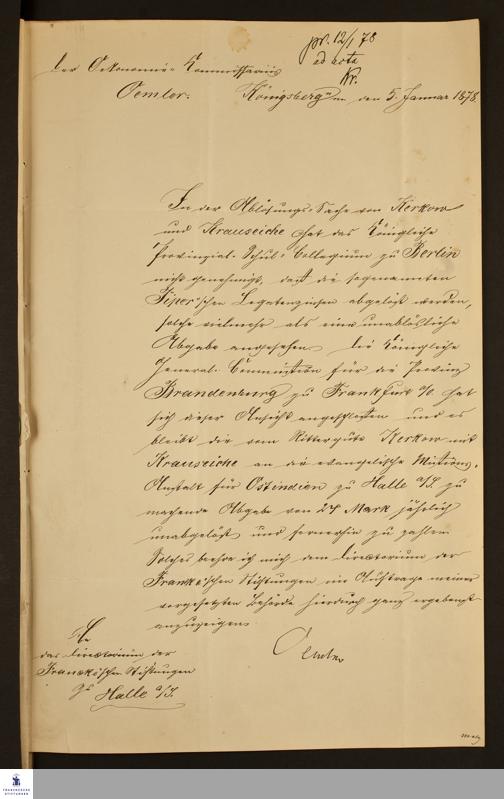 pr. 12/1 78
ad acta
Kr.
Der Oekonomie-Kommissarius
Oemler.
Königsberg n/m den 5. Januar 1878.
In der Ablösungs-Sache von Kerkow
und Krauseiche hat das Königliche
Provinzial-Schul-Collegium zu Berlin
nicht genehmigt, daß die sogenannten
'schen Legatenzinsen abgelöst werden,
solche vielmehr als eine unablösliche
Abgabe angesehen. Die Königliche
General-Commission für die Provinz
Brandenburg zu Frankfurt a/O. hat
sich dieser Ansicht angeschlossen und es
bleibt die vom Rittergute Kerkow mit
Krauseiche an die evangelische Missions-
Anstalt für Ostindien zu Halle a/S. zu
machende Abgabe von 24 Mark jährlich
unabgelöst und fernerhin zu zahlen.
Solches beehre ich mich dem Directorium der
Franke'schen Stiftungen im Auftrage meiner
vorgesetzten Behörde hierdurch ganz ergebenst
anzuzeigen.
Oemler
An
das Directorium der
Franckeschen Stiftungen
zu Halle a/S.
FRANCKESCHE
STIFTUNGEN